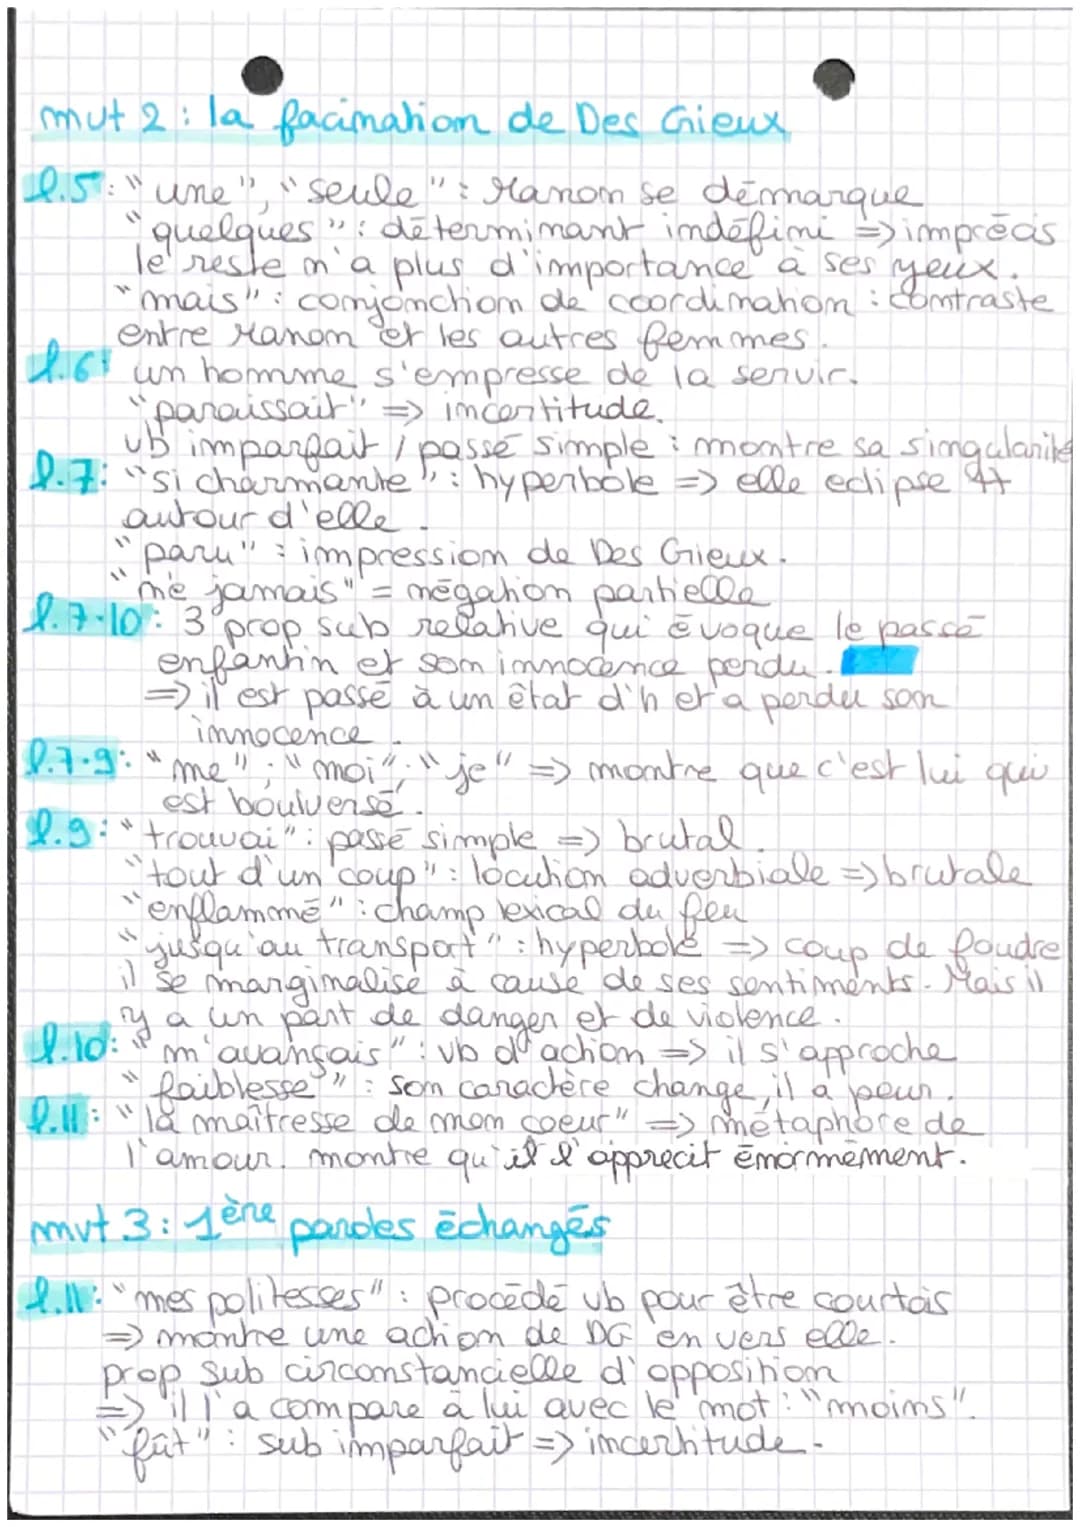 mvt 2 : la facination de Des Grieux
l.5 : "une", "seule" : Manon se démarque
"quelques" : déterminant indéfini => imprécis
le reste n'a plus d'importance à ses yeux.
"mais" : conjonction de coordination : contraste
entre Manon et les autres femmes.
l.6 : un homme s'empresse de la servir.
"paraissait" => incertitude.
vb imparfait / passé simple : montre sa singularité
l.7 : "si charmante" : hyperbole => elle eclipse tt
autour d'elle.
"paru" : impression de Des Grieux.
"ne jamais" = négation partielle
l.7-10 : 3 prop sub relative qui évoque le passé
enfantin et son innocence perdu.
=> il est passé à un état d'h et a perdu son
innocence.
l.7-9 : "me" ; "moi" ; "je" => montre que c'est lui qui
est boulversé.
l.9 : "trouvai" : passé simple => brutal.
"tout d'un coup" : locution adverbiale => brutale
"enflammé" : champ lexical du feu
"jusqu'au transport" : hyperbole => coup de foudre
il se marginalise à cause de ses sentiments. Mais il
y a un part de danger et de violence.
l.10 : "m'avançais" : vb d'action => il s'approche
"faiblesse" : son caractère change, il a peur.
l.11 : "la maîtresse de mon coeur" => métaphore de
l'amour. montre qu'il l'apprecit énormément.
mvt 3 : 1ère paroles échangés
l.11 : "mes politesses" : procédé vb pour être courtois
=> montre une action de DG en vers elle.
prop sub circonstancielle d'opposition
=> il l'a compare à lui avec le mot : "moins".
"fût" : sub imparfait => incertitude.